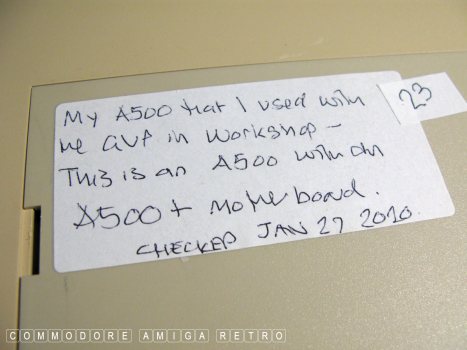 My A500 that I used with
me GVP in workshop –
This is an A500 with an
A500+ motherboard.
CHECKED JAN 27 2010.
23
COMMODORE AMIGA RETRO